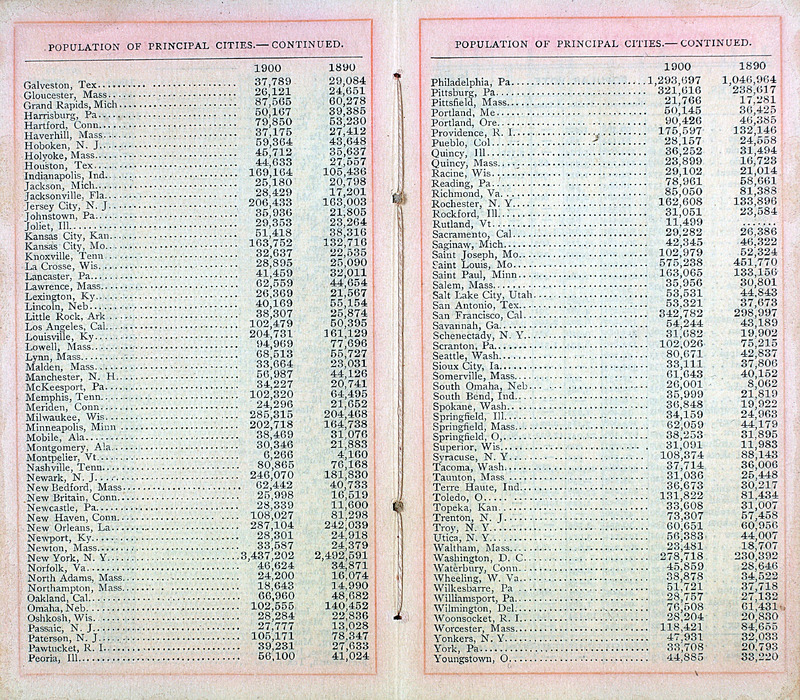 POPULATION OF PRINCIPAL CITIES.—CONTINUED.
1900 1890
Galveston, Tex 37,789 29,084
Gloucester, Mass 26,121 24,651
Grand Rapids, Mich 87,565 60,278
Harrisburg, Pa 50,167 39,385
Hartford, Conn 79,850 53,230
Haverhill, Mass 37,175 27,412
Hoboken, N. J 59,364 43,648
Holyoke, Mass 45,712 35,637
Houston, Tex 44,633 27,557
Indianapolis, Ind 169,164 105,436
Jackson, Mich 25,180 20,798
Jacksonville, Fla 28,429 17,201
Jersey City, N. J 206,433 163,003
Johnstown, Pa 35,936 21,805
Joliet, Ill 29,353 23,264
Kansas City, Kan 51,418 38,316
Kansas City, Mo 163,752 132,716
Knoxville, Tenn 32,637 22,535
La Crosse, Wis 28,895 25,090
Lancaster, Pa 41,459 32,011
Lawrence, Mass 62,559 44,654
Lexington, Ky 26,369 21,567
Lincoln, Neb 40,169 55,154
Little Rock, Ark 38,307 25,874
Los Angeles, Cal 102,479 50,395
Louisville, Ky 204,731 161,129
Lowell, Mass 94,969 77,696
Lynn, Mass 68,513 55,727
Malden, Mass 33,664 23,031
Manchester, N. H 56,987 44,126
McKeesport, Pa 34,227 20,741
Memphis, Tenn 102,320 64,495
Meriden, Conn 24,296 21,652
Milwaukee, Wis 285,315 204,468
Minneapolis, Minn 202,718 164,738
Mobile, Ala 38,469 31,076
Montgomery, Ala 30,346 21,883
Montpelier, Vt 6,266 4,160
Nashville, Tenn 80,865 76,168
Newark, N. J 246,070 181,830
New Bedford, Mass 62,442 40,733
New Britain, Conn 25,998 16,519
Newcastle, Pa 28,339 11,600
New Haven, Conn 108,027 81,298
New Orleans, La 287,104 242,039
Newport, Ky 28,301 24,918
Newton, Mass 33,587 24,379
New York, N. Y 3,437,202 2,492,591
Norfolk, Va 46,624 34,871
North Adams, Mass 24,200 16,074
Northampton, Mass 18,643 14,990
Oakland, Cal 66,960 48,682
Omaha, Neb 102,555 140,452
Oshkosh, Wis 28,284 22,836
Passaic, N. J 27,777 13,028
Paterson, N. J 105,171 78,347
Pawtucket, R. I 39,231 27,633
Peoria, Ill 56,100 41,024
POPULATION OF PRINCIPAL CITIES.—CONTINUED.
1900 1890
Philadelphia, Pa 1,293,697 1,046,964
Pittsburg, Pa 321,616 238,617
Pittsfield, Mass 21,766 17,281
Portland, Me 50,145 36,425
Portland, Ore 90,426 46,385
Providence, R. I 175,597 132,146
Pueblo, Col 28,157 24,558
Quincy, Ill 36,252 31,494
Quincy, Mass 23,899 16,723
Racine, Wis 29,102 21,014
Reading, Pa 78,961 58,661
Richmond, Va 85,050 81,388
Rochester, N. Y 162,608 133,896
Rockford, Ill 31,051 23,584
Rutland, Vt 11,499
Sacramento, Cal 29,282 26,386
Saginaw, Mich 42,345 46,322
Saint Joseph, Mo 102,979 52,324
Saint Louis, Mo 575,238 451,770
Saint Paul, Minn 163,065 133,156
Salem, Mass 35,956 30,801
Salt Lake City, Utah 53,531 44,843
San Antonio, Tex 53,321 37,673
San Francisco, Cal 342,782 298,997
Savannah, Ga 54,244 43,189
Schenectady, N. Y 31,682 19,902
Scranton, Pa 102,026 75,215
Seattle, Wash 80,671 42,837
Sioux City, Ia 33,111 37,806
Somerville, Mass 61,643 40,152
South Omaha, Neb 26,001 8,062
South Bend, Ind 35,999 21,819
Spokane, Wash 36,848 19,922
Springfield, Ill 34,159 24,963
Springfield, Mass 62,059 44,179
Springfield, O 38,253 31,895
Superior, Wis 31,091 11,983
Syracuse, N. Y 108,374 88,143
Tacoma, Wash 37,714 36,006
Taunton, Mass 31,036 25,448
Terre Haute, Ind 36,673 30,217
Toledo, O 131,822 81,434
Topeka, Kan 33,608 31,007
Trenton, N. J 73,307 57,458
Troy, N. Y 60,651 60,956
Utica, N. Y 56,383 44,007
Waltham, Mass 23,481 18,707
Washington, D. C 278,718 230,392
Waterbury, Conn 45,859 28,646
Wheeling, W. Va 38,878 34,522
Wilkesbarre, Pa 51,721 37,718
Williamsport, Pa 28,757 27,132
Wilmington, Del 76,508 61,431
Woonsocket, R. I 28,204 20,830
Worcester, Mass 118,421 84,655
Yonkers, N. Y 47,931 32,033
York, Pa 33,708 20,793
Youngstown, O 44,885 33,220